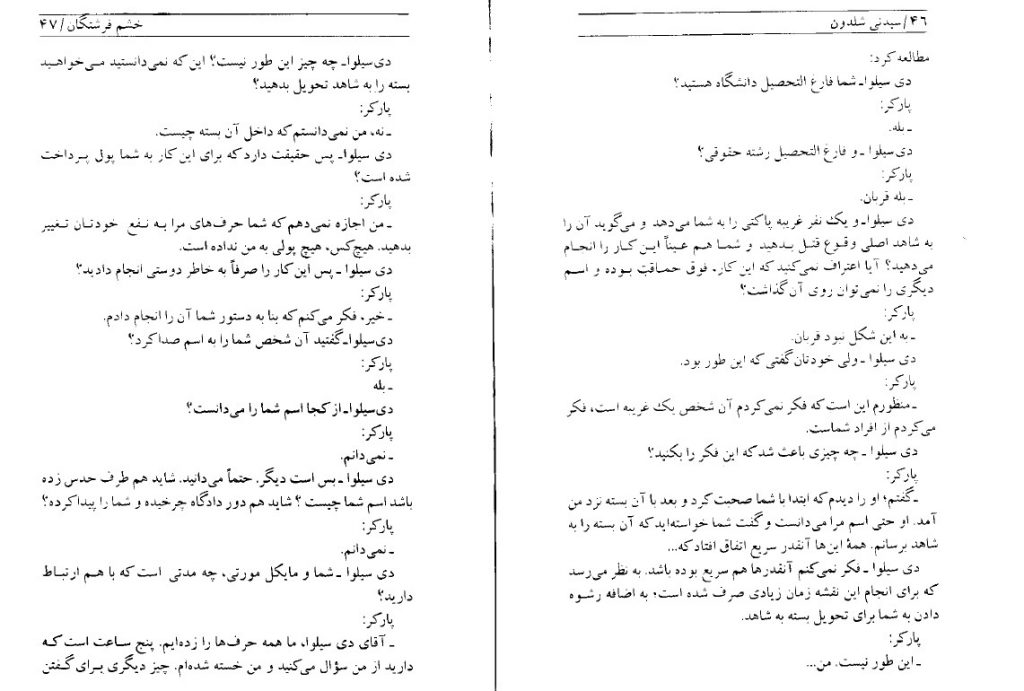 ۴۶/سیدنی شلدون
مطالعه کرد:
دی سیلوا ـ شما فارغ التحصیل دانشگاه هستید؟
پارکر:
ـ بله.
دی سیلوا ـ و فارغ التحصیل رشته حقوقی؟
پارکر:
ـ بله قربان.
دی سیلوا ـ و یک نفر غریبه پاکتی را به شما می‌دهد و می‌گوید آن را
به شاهد اصلی وقوع قتل بدهید و شما هم عیناً این کار را انجام
می‌دهید؟ آیا اعتراف نمی‌کنید که این کار، فوق حماقت بوده و اسم
دیگری را نمی‌توان روی آن گذاشت؟
پارکر:
ـ به این شکل نبود قربان.
دی سیلوا ـ ولی خودتان گفتی که این طور بود.
پارکر:
ـ منظورم این است که فکر نمی‌کردم آن شخص یک غریبه است، فکر
می‌کردم از افراد شماست.
دی سیلوا ـ چه چیزی باعث شد که این فکر را بکنید؟
پارکر:
ـ گفتم؛ او را دیدم که ابتدا با شما صحبت کرد و بعد با آن بسته نزد من
آمد. او حتی اسم مرا می‌دانست و گفت شما خواسته‌اید که آن بسته را به
شاهد برسانم. همهٔ این‌ها آنقدر سریع اتفاق افتاد که...
دی سیلوا ـ فکر نمی‌کنم آنقدرها هم سریع بوده باشد. به نظر می‌رسد
که برای انجام این نقشه زمان زیادی صرف شده است؛ به اضافه رشوه
دادن به شما برای تحویل بسته به شاهد.
پارکر:
ـ این طور نیست. من...
خشم فرشتگان/۴۷
دی سیلوا ـ چه چیز این طور نیست؟ این که نمی‌دانستید می‌خواهید
بسته را به شاهد تحویل بدهید؟
پارکر:
ـ نه، من نمی‌دانستم که داخل آن بسته چیست.
دی سیلوا ـ پس حقیقت دارد که برای این کار به شما پول پرداخت
شده است؟
پارکر:
ـ من اجازه نمی‌دهم که شما حرف‌های مرا به نفع خودتان تغییر
بدهید. هیچ‌کس، هیچ پولی به من نداده است.
دی سیلوا ـ پس این کار را صرفاً به خاطر دوستی انجام دادید؟
پارکر:
ـ خیر، فکر می‌کنم که بنا به دستور شما آن را انجام دادم.
دی سیلوا ـ گفتید آن شخص شما را به اسم صدا کرد؟
پارکر:
ـ بله
دی سیلوا ـ از کجا اسم شما را می‌دانست؟
پارکر:
ـ نمی‌دانم.
دی سیلوا ـ بس است دیگر. حتماً می‌دانید. شاید هم طرف حدس زده
باشد اسم شما چیست ؟ شاید هم دور دادگاه چرخیده و شما را پیدا کرده؟
پارکر:
ـ نمی‌دانم.
دی سیلوا ـ شما و مایکل مورتی، چه مدتی است که با هم ارتباط
دارید؟
پارکر:
ـ آقای دی سیلوا، ما همه حرف‌ها را زده‌ایم. پنج ساعت است که
دارید از من سؤال می‌کنید و من خسته شده‌ام. چیز دیگری برای گفتن